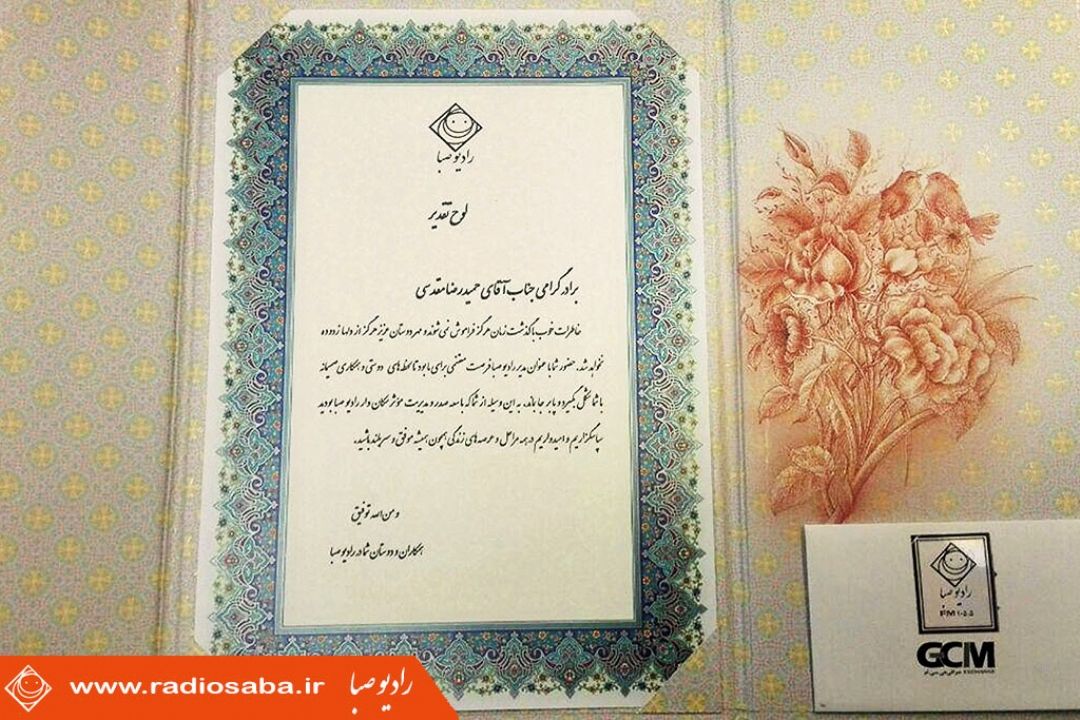 رادیو صبا
لوح تقدیر
برادر گرامی جناب آقای حمیدرضا مقدسی
خاطرات خوب با گذشت زمان هرگز فراموش نمی شوند و مهر دوستان عزیز هرگز از دلها زدوده
نخواهد شد. حضور شما با عنوان مدیر رادیو صبا فرصت مغتنمی برای ما بود تا لحظه های دوستی و همکاری صمیمانه
با شما شکل بگیرد و پابرجا بماند. به این وسیله از شما که با سعه صدر و مدیریت مؤثر سکان دار رادیو صبا بودید
سپاسگزاریم و امیدواریم در همه مراحل و عرصه های زندگی همچون همیشه موفق و سربلند باشید.
و من الله توفیق
همکاران و دوستان شما در رادیو صبا
رادیو صبا
FM ۱۰۵.۵
GCM
EXCHANGE صرافی جی سی ام
www.radiosaba.ir رادیو صبا